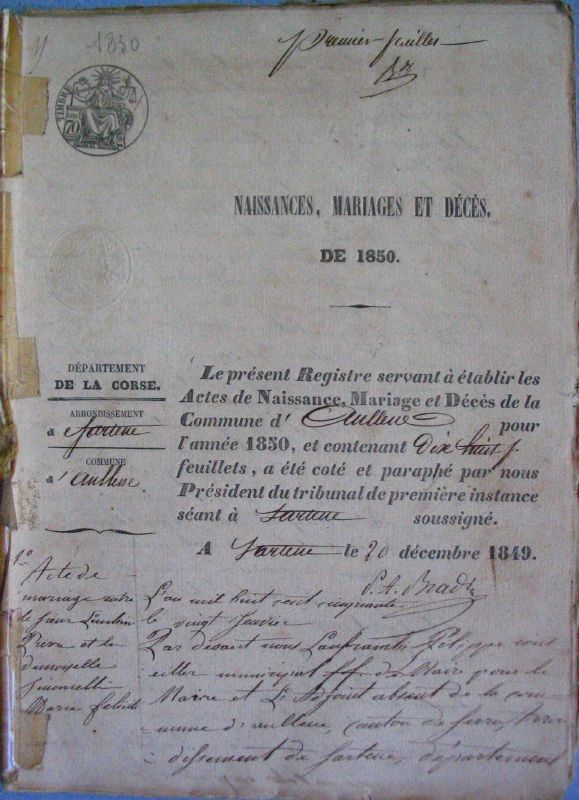 1850
premier feuillet
TIMBRE
70
NAISSANCES, MARIAGES ET DÉCÈS.
DE 1850.
DÉPARTEMENT
DE LA CORSE.
ARRONDISSEMENT
d Sartene
COMMUNE
d' aullene.
Le présent Registre servant à établir les
Actes de Naissance, Mariage et Décès de la
Commune d' Aullene pour
l'année 1850, et contenant Dix huit
feuillets, a été coté et paraphé par nous
Président du tribunal de première instance
séant à Sartene soussigné.
A Sartene le 20 décembre 1849.
1º
Acte de
mariage entre
le sieur
et la
demoiselle
Simonelli
Marie felicité
L'an mil huit cent cinquante
le vingt Janvier
Par devant nous Lanfranchi Filippe cons
eiller municipal ff. de Maire pour le
Maire et L'Adjoint absent de la com
mune d'aullene, canton de Serra, arron
dissement de Sartene, département